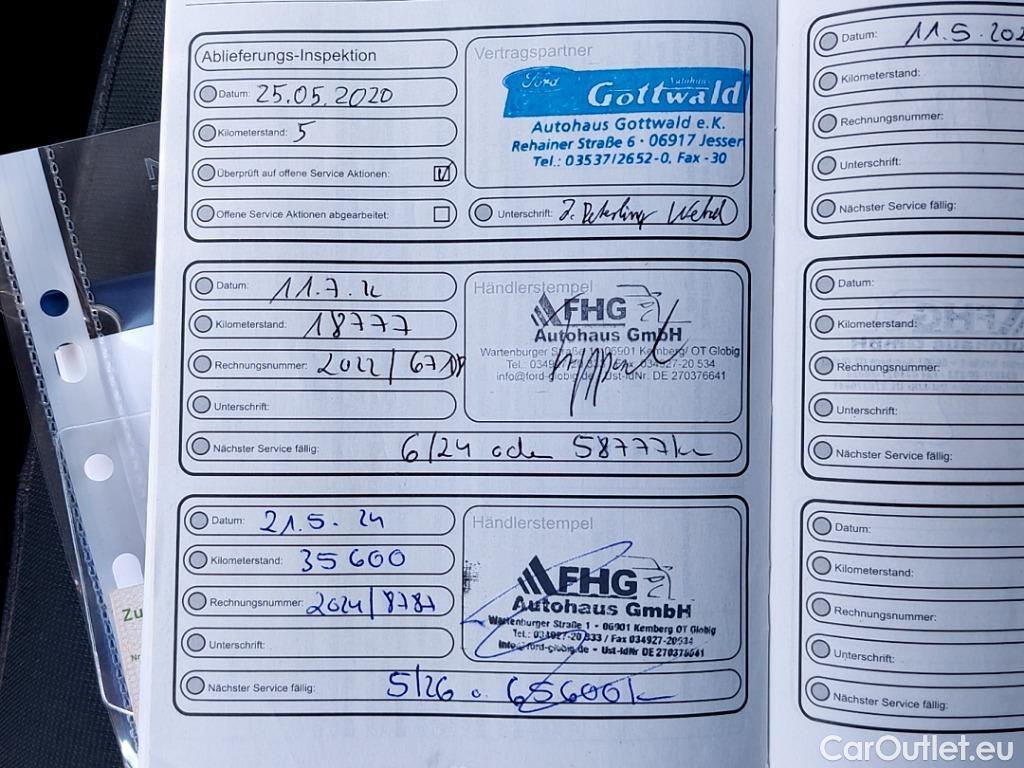 Ablieferungs-Inspektion
Datum: 25.05.2020
Kilometerstand: 5
Überprüft auf offene Service Aktionen:
Offene Service Aktionen abgearbeitet:
Vertragspartner
Ford Autohaus
Gottwald
Autohaus Gottwald e.K.
Rehainer Straße 6 · 06917 Jessen
Tel.: 03537/2652-0, Fax -30
Unterschrift:
Datum: 11.7.
Kilometerstand: 18777
Rechnungsnummer: 2022/
Unterschrift:
Nächster Service fällig: 6/24 oder 58777km
Händlerstempel
FHG
Autohaus GmbH
Wartenburger Straße 1 - 06901 Kemberg/ OT Globig
Tel.: 034927-20 333 Fax 034927-20 534
info@ford-globig.de Ust-IdNr. DE 270376641
Datum: 21.5.24
Kilometerstand: 35600
Rechnungsnummer: 2024/8787
Unterschrift:
Nächster Service fällig: 5/26 o. 65600km
Händlerstempel
FHG
Autohaus GmbH
Wartenburger Straße 1 - 06901 Kemberg OT Globig
Tel.: 034927-20 333 / Fax 034927-20534
info@ford-globig.de - Ust-IdNr DE 270376641
Datum: 11.5.202
Kilometerstand:
Rechnungsnummer:
Unterschrift:
Nächster Service fällig:
Datum:
Kilometerstand:
Rechnungsnummer:
Unterschrift:
Nächster Service fällig:
Datum:
Kilometerstand:
Rechnungsnummer:
Unterschrift:
Nächster Service fällig:
Zu
Nr
CarOutlet.eu